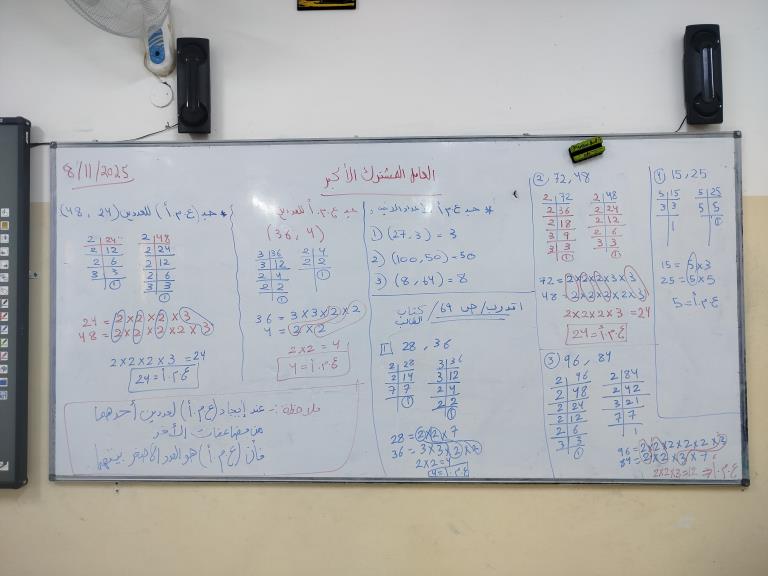 8/11/2025
العامل المشترك الأكبر
* جد (ع.م.أ) للعددين (24 , 48)
2 | 24
2 | 12
2 | 6
3 | 3
① 
2 | 48
2 | 24
2 | 12
2 | 6
3 | 3
①
24 = 2×2×2×3
48 = 2×2×2×2×3
2×2×2×3 = 24
ع.م.أ = 24
ملاحظة :- عند إيجاد (ع.م.أ) لعددين أحدهما
من مضاعفات الآخر
فأن (ع.م.أ) هو العدد الأصغر بينهما
جد ع.م.أ للعددين
(36, 4)
3 | 36
3 | 12
2 | 4
2 | 2
①
2 | 4
2 | 2
①
36 = 3×3×2×2
4 = 2×2
2×2 = 4
ع.م.أ = 4
* جد ع.م.أ
1) (27,3) = 3
2) (100,50) = 50
3) (8,64) = 8
اتدرب / ص 69 / كتاب
الطالب
1 28 , 36
2 | 28
2 | 14
7 | 7
①
3 | 36
3 | 12
2 | 4
2 | 2
①
28 = 2×2×7
36 = 3×3×2×2
2×2=4
ع.م.أ = 4
② 72,48
2 | 72
2 | 36
2 | 18
3 | 9
3 | 3
①
2 | 48
2 | 24
2 | 12
2 | 6
3 | 3
①
72 = 2×2×2×3×3
48 = 2×2×2×2×3
2×2×2×3 = 24
ع.م.أ = 24
③ 96, 84
2 | 96
2 | 48
2 | 24
2 | 12
2 | 6
3 | 3
①
2 | 84
2 | 42
3 | 21
7 | 7
1
96 = 2×2×2×2×2×3
84 = 2×2×3×7
2×2×3=12 ع.م.أ
④ 15,25
5 | 15
3 | 3
1
5 | 25
5 | 5
①
15 = 5×3
25 = 5×5
ع.م.أ = 5